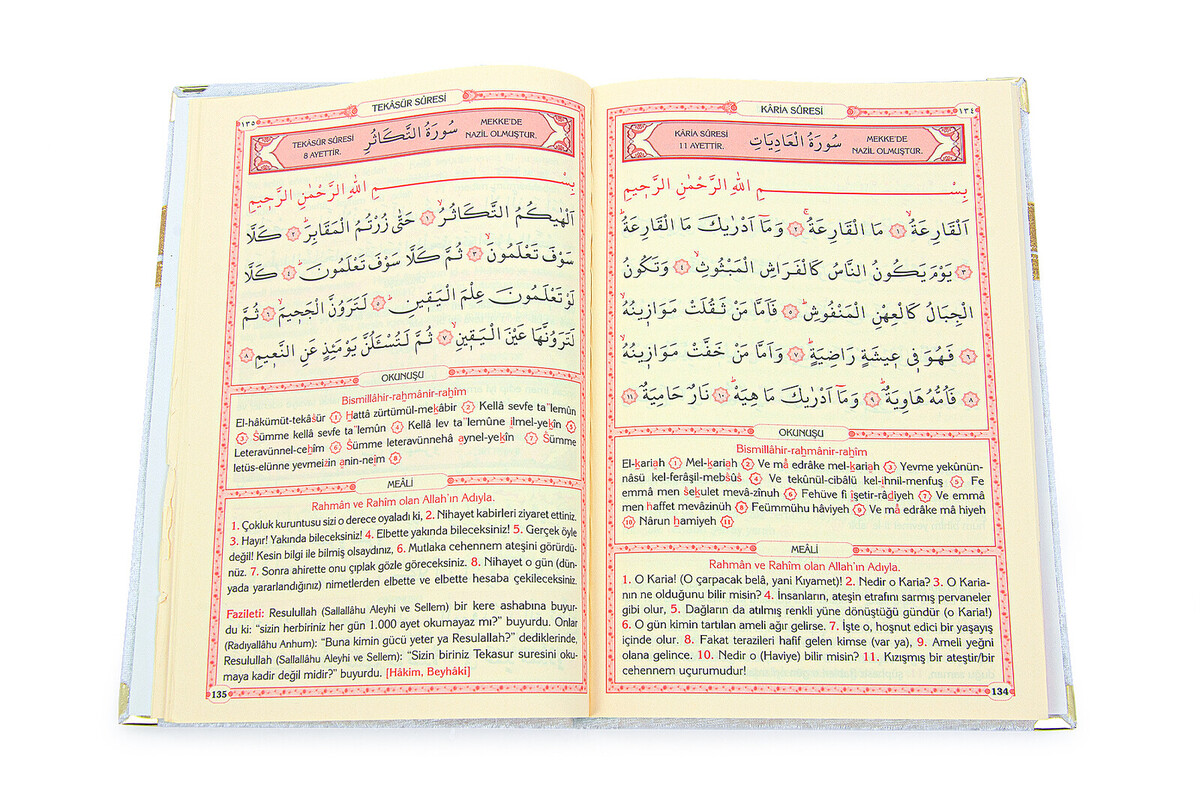 KÂRİA SÛRESİ
١٣٤
KÂRİA SÛRESİ
11 AYETTİR.
سُورَةُ الْعَادِيَاتِ
MEKKE'DE
NAZİL OLMUŞTUR.
بِسْمِ اللهِ الرَّحْمٰنِ الرَّحٖيمِ
اَلْقَارِعَةُۙ ١ مَا الْقَارِعَةُۚ ٢ وَمَٓا اَدْرٰيكَ مَا الْقَارِعَةُؕ
٣ يَوْمَ يَكُونُ النَّاسُ كَالْفَرَاشِ الْمَبْثُوثِۙ ٤ وَتَكُونُ
الْجِبَالُ كَالْعِهْنِ الْمَنْفُوشِؕ ٥ فَاَمَّا مَنْ ثَقُلَتْ مَوَازٖينُهُۙ
٦ فَهُوَ فٖى عٖيشَةٍ رَاضِيَةٍؕ ٧ وَاَمَّا مَنْ خَفَّتْ مَوَازٖينُهُۙ
٨ فَاُمُّهُ هَاوِيَةٌؕ ٩ وَمَٓا اَدْرٰيكَ مَا هِيَهْؕ ١٠ نَارٌ حَامِيَةٌ ١١
OKUNUŞU
Bismillâhir-rahmânir-rahîm
El-kariah 1 Mel-kariah 2 Ve mâ edrâke mel-kariah 3 Yevme yekûnün-
nâsü kel-ferâşil-mebsûs 4 Ve tekûnül-cibâlü kel-ihnil-menfuş 5 Fe
emmâ men sekulet mevâ-zînuh 6 Fehüve fî îşetir-râdiyeh 7 Ve emmâ
men haffet mevâzinüh 8 Feümmühu hâviyeh 9 Ve mâ edrâke mâ hiyeh
10 Nârun hamiyeh 11
MEÂLİ
Rahmân ve Rahîm olan Allah'ın Adıyla.
1. O Karia! (O çarpacak belâ, yani Kıyamet)! 2. Nedir o Karia? 3. O Karia-
nın ne olduğunu bilir misin? 4. İnsanların, ateşin etrafını sarmış pervaneler
gibi olur, 5. Dağların da atılmış renkli yüne dönüştüğü gündür (o Karia!)
6. O gün kimin tartılan ameli ağır gelirse. 7. İşte o, hoşnut edici bir yaşayış
içinde olur. 8. Fakat terazileri hafif gelen kimse (var ya), 9. Ameli yeğni
olana gelince. 10. Nedir o (Haviye) bilir misin? 11. Kızışmış bir ateştir/bir
cehennem uçurumudur!
134
TEKÂSÜR SÛRESİ
١٣٥
TEKÂSÜR SÛRESİ
8 AYETTİR.
سُورَةُ التَّكَاثُرِ
MEKKE'DE
NAZİL OLMUŞTUR.
بِسْمِ اللهِ الرَّحْمٰنِ الرَّحٖيمِ
اَلْهٰيكُمُ التَّكَاثُرُۙ ١ حَتّٰى زُرْتُمُ الْمَقَابِرَؕ ٢ كَلَّا
سَوْفَ تَعْلَمُونَۙ ٣ ثُمَّ كَلَّا سَوْفَ تَعْلَمُونَؕ ٤ كَلَّا
لَوْ تَعْلَمُونَ عِلْمَ الْيَقٖينِؕ ٥ لَتَرَوُنَّ الْجَحٖيمَۙ ٦ ثُمَّ
لَتَرَوُنَّهَا عَيْنَ الْيَقٖينِۙ ٧ ثُمَّ لَتُسْـَٔلُنَّ يَوْمَئِذٍ عَنِ النَّعٖيمِ ٨
OKUNUŞU
Bismillâhir-rahmânir-rahîm
El-hâkümüt-tekâsür 1 Hattâ zürtümül-mekâbir 2 Kellâ sevfe ta¨lemûn
3 Sümme kellâ sevfe ta¨lemûn 4 Kellâ lev ta¨lemûne ilmel-yekîn 5
Leteravünnel-cehîm 6 Sümme leteravünnehâ aynel-yekîn 7 Sümme
letüs-elünne yevmeizin anin-neim 8
MEÂLİ
Rahmân ve Rahîm olan Allah'ın Adıyla.
1. Çokluk kuruntusu sizi o derece oyaladı ki, 2. Nihayet kabirleri ziyaret ettiniz.
3. Hayır! Yakında bileceksiniz! 4. Elbette yakında bileceksiniz! 5. Gerçek öyle
değil! Kesin bilgi ile bilmiş olsaydınız, 6. Mutlaka cehennem ateşini görürdü-
nüz. 7. Sonra ahirette onu çıplak gözle göreceksiniz. 8. Nihayet o gün (dün-
yada yararlandığınız) nimetlerden elbette ve elbette hesaba çekileceksiniz.
Fazileti: Resulullah (Sallallâhu Aleyhi ve Sellem) bir kere ashabına buyur-
du ki: “sizin herbiriniz her gün 1.000 ayet okuyamaz mı?” buyurdu. Onlar
(Radıyallâhu Anhum): “Buna kimin gücü yeter ya Resulallah?” dediklerinde,
Resulullah (Sallallâhu Aleyhi ve Sellem): “Sizin biriniz Tekasur suresini oku-
maya kadir değil midir?” buyurdu. [Hâkim, Beyhâki]
135